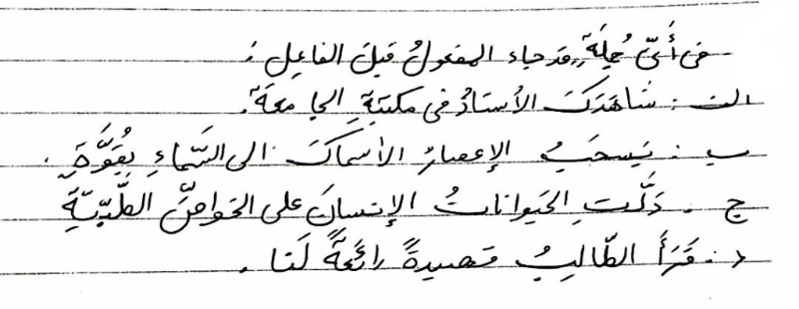 فی أَيِّ جُملَةٍ قد جاء المفعولُ قبلَ الفاعلِ :
الف : شاهَدَكَ الأُستاذُ فی مکتبَةِ الجامعَةِ.
ب : یَسحَبُ الإعصارُ الأسماكَ الی السَّماءِ بِقُوَّةٍ .
ج . دَلَّتِ الحَیَواناتُ الإنسانَ علی الخَواصِّ الطِّبّیَّةِ
د : قَرَأَ الطّالِبُ قصیدةً رائعةً لَنا .